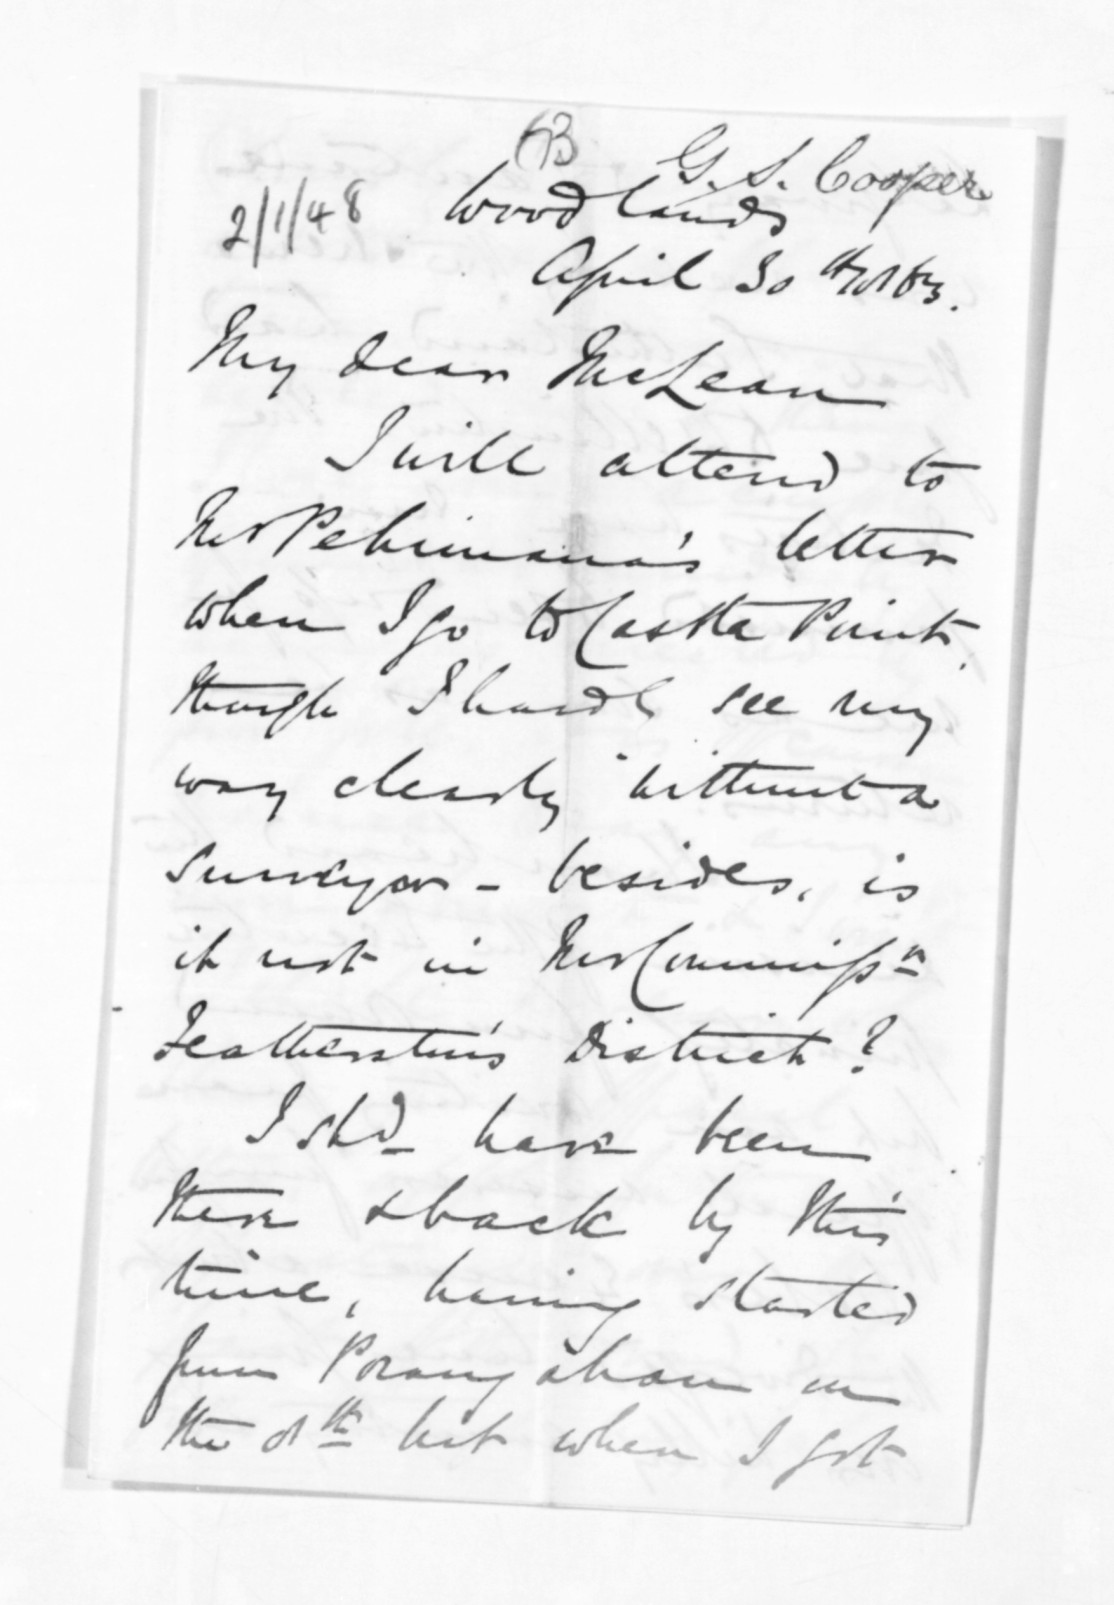 G. S. Cooper
2/1/48
Woodlands
April 30th /63.
My dear McLean
I will attend to
Mr Pehimana's letter
when I go to Castle Point,
though I hardl see my
way clearly without a
surveyor - besides, is
it not in Mr Commissr
Featherston's District?
I shd have been
there & back by this
time, having started
from Porangahau on
the 8th but when I got